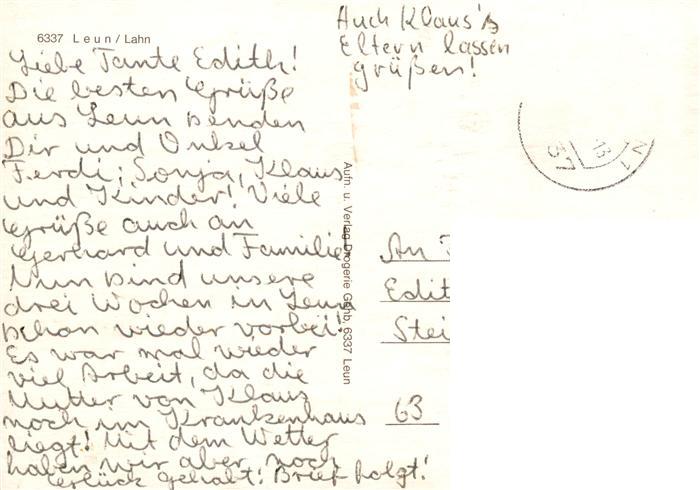 6337 Leun / Lahn
Auch Klaus's
Eltern lassen
grüßen!
Liebe Tante Edith!
Die besten Grüße
aus Leun senden
Dir und Onkel
Ferdi; Sonja, Klaus
und Kinder! Viele
Grüße auch an
Gerhard und Familie
Nun sind unsere
drei Wochen in Leun
schon wieder vorbei!
Es war mal wieder
viel Arbeit, da die
Mutter von Klaus
noch im Krankenhaus
liegt! Mit dem Wetter
haben wir aber noch
Glück gehabt! Brief folgt!
Aufn. u. Verlag Drogerie 6337 Leun
An
Edit
Stei
63